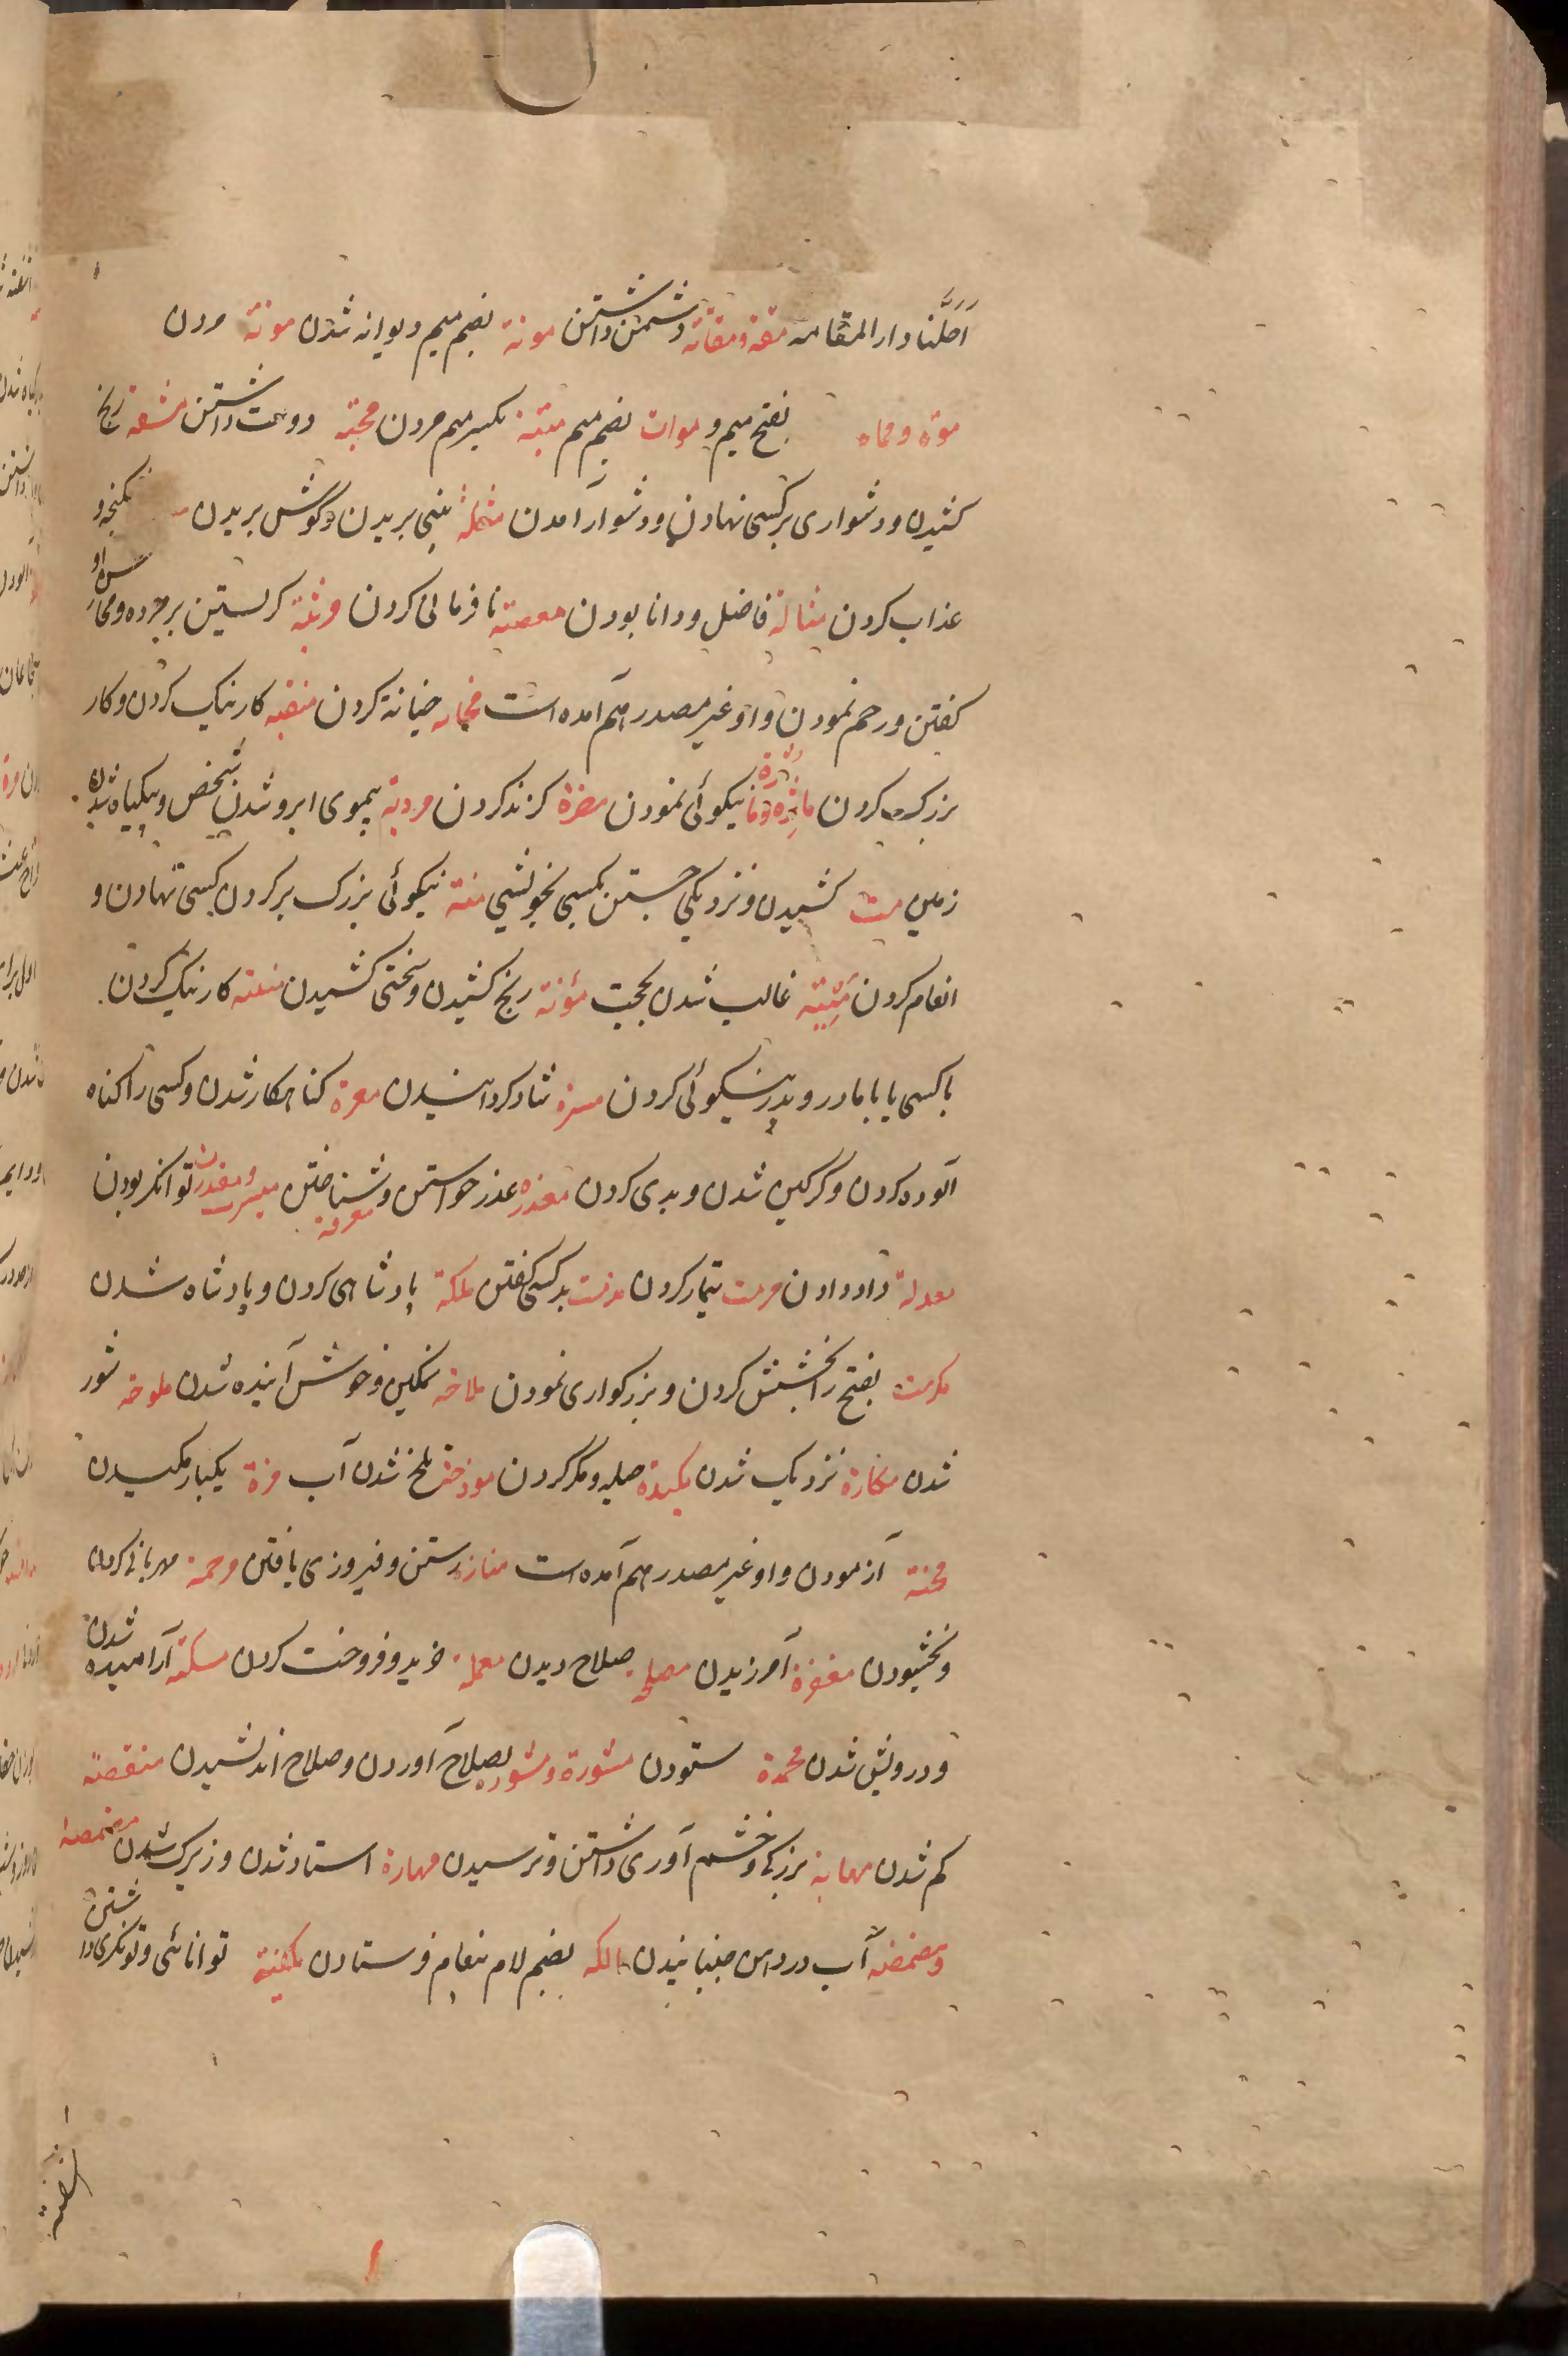 اَحَلَّنا دار المقامه مقة ومقاتة دشمن داشتن موتة بضم میم دیوانه شدن موتة مردن
موة ومماه بفتح میم و موات بضم میم میتة بکسر میم مردن محبة دوست داشتن مشقة رنج
کشیدن ودشواری بر کسی نهادن ودشوار آمدن مثلة بینی بریدن وگوش بریدن
عذاب کردن فاضل ودانا بودن معصیة نافرمانی کردن مرثیة کریستن بر مرده
کفتن ورحم نمودن واو غیر مصدر هم آمده است خیانة کردن منقبه کار نیک کردن وکار
بزرک کردن نیکوئی نمودن مضرة کزند کردن بیموی ابرو شدن شخص وبیکیاه شدن
زمین مت کشیدن ونزدیکی جستن بکسی بخویشی منة نیکوئی بزرک بر کردن کسی نهادن و
انعام کردن غالب شدن بحجت مؤنة رنج کشیدن وسختی کشیدن کار نیک کردن
با کسی یا با مادر وپدر نیکوئی کردن مسرة شاد کردانیدن معرة کناهکار شدن وکسی را کناه
آلوده کردن وگرکین شدن وبدی کردن معذره عذر خواستن معرفة وشناختن میسرت ومقدرت توانکر بودن
معدلة داد دادن مرمت تیمار کردن مذمت بد کسی کفتن ملکة پادشاهی کردن وپادشاه شدن
مکرمت بفتح را بخشش کردن وبزرکواری نمودن ملاحه نمکین وخوش آینده شدن ملوحه شور
شدن نزدیک شدن مکیدة حیله ومکر کردن تلخ شدن آب مزة یکبار مکیدن
محنة آزمودن واو غیر مصدر هم آمده است مفازه رستن وفیروزی یافتن مرحمة مهربانی کردن
وبخشودن مغفرة آمرزیدن مصلحة صلاح دیدن معملة خرید وفروخت کردن مسکنة آرامیده شدن
ودرویش شدن محمدة ستودن مشورة ومشوره بصلاح آوردن وصلاح اندیشیدن منقصة
کم شدن مهابة بزرکی وخشم آوری داشتن وترسیدن مهارة استاد شدن وزیرک شدن مضمضة
ومصمصه آب در دهن جنبانیدن مالکه بضم لام پیغام فرستادن مکنة توانائی وتونکری داشتن